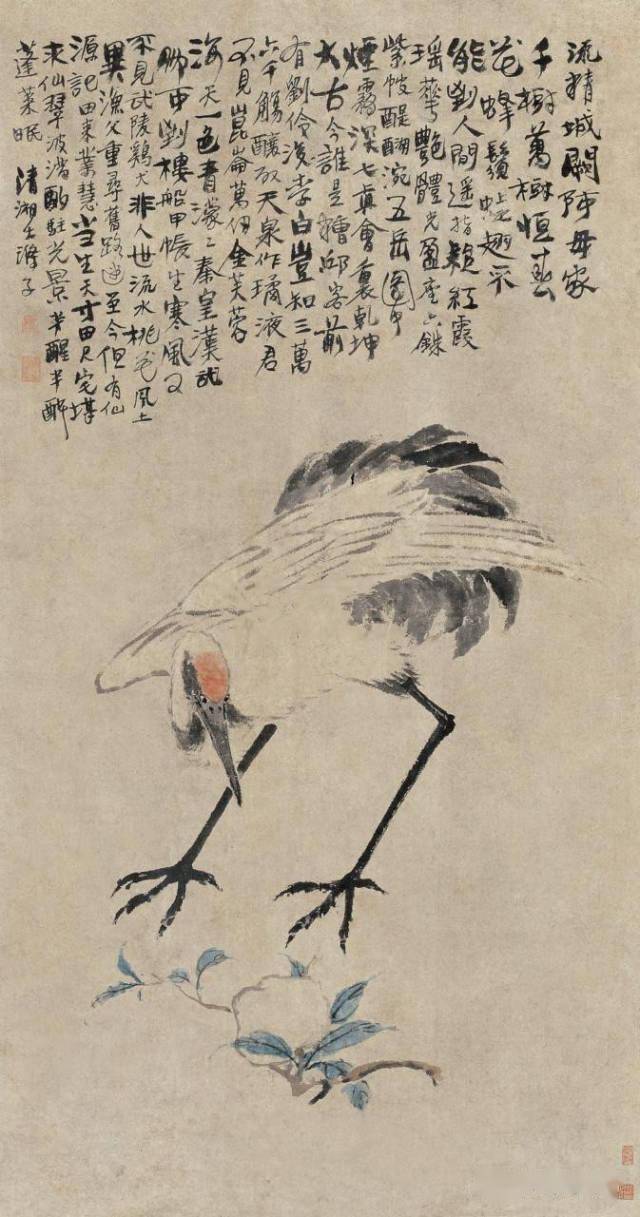 流精城闕降母家
千樹萬樹恒春
花蜂鬚蝶翅不
能到人間遙指頳紅霞
瑤華艷體光盈座六銖
紫帔醒浣五岳圖中
煙霧深七真會裏乾坤
大古今誰是糟邱客前
有劉伶後李白豈知三萬
六千觴釀取天泉作璚液君
不見崑崙萬仞金芙蓉
海天一色青濛々秦皇漢武
到樓船甲帳生寒風又
不見武陵鷄犬非人世流水桃花風土
異漁父重尋舊路迷至今但有仙
源記由來業慧當生天寸田尺宅堪
求仙翠波滿酌駐光景半醒半醉
蓬萊眠 清湘大滌子